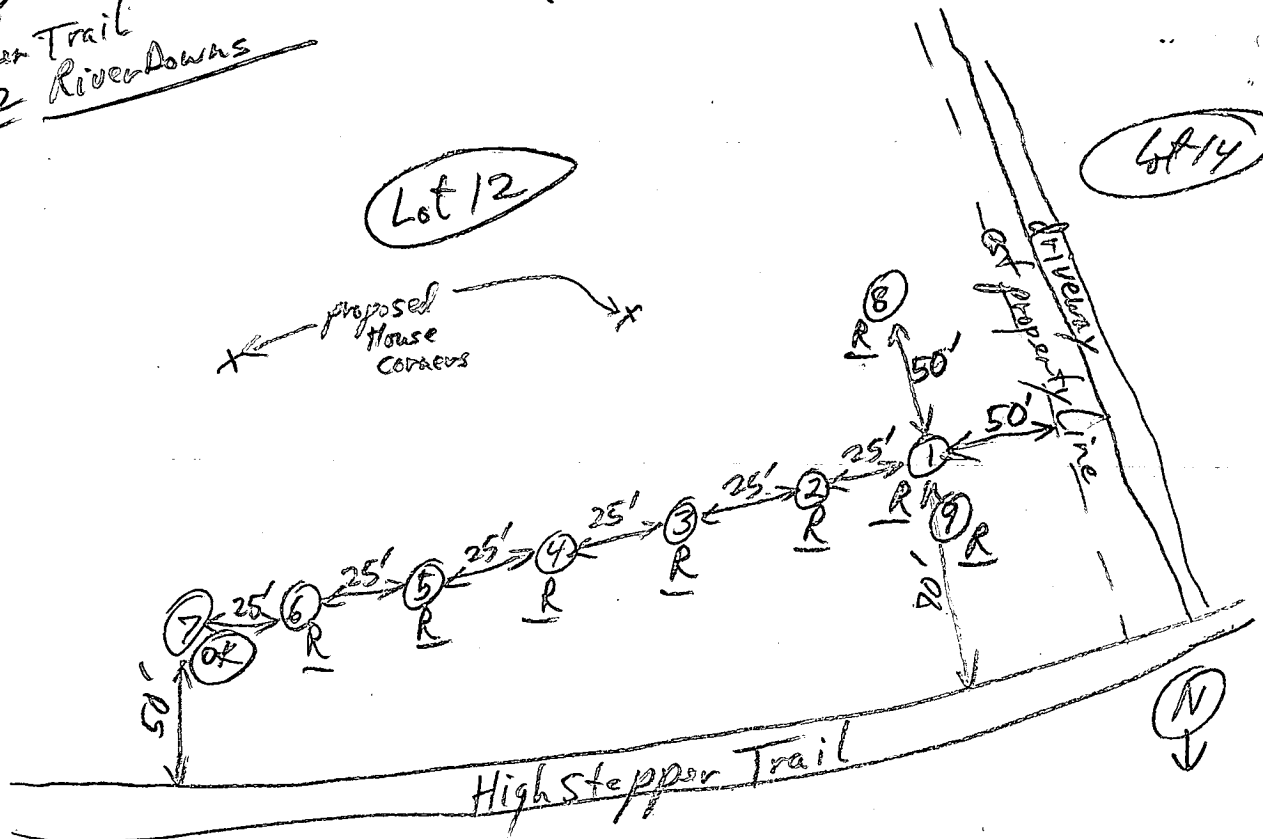 Trail
River Downs
Lot 12
Lot 14
proposed
House
corners
driveway
property line
8
R
50'
50'
1
R
25'
2
R
25'
3
R
25'
4
R
25'
5
R
25'
6
R
25'
7
OK
50'
9
R
High Stepper Trail
N